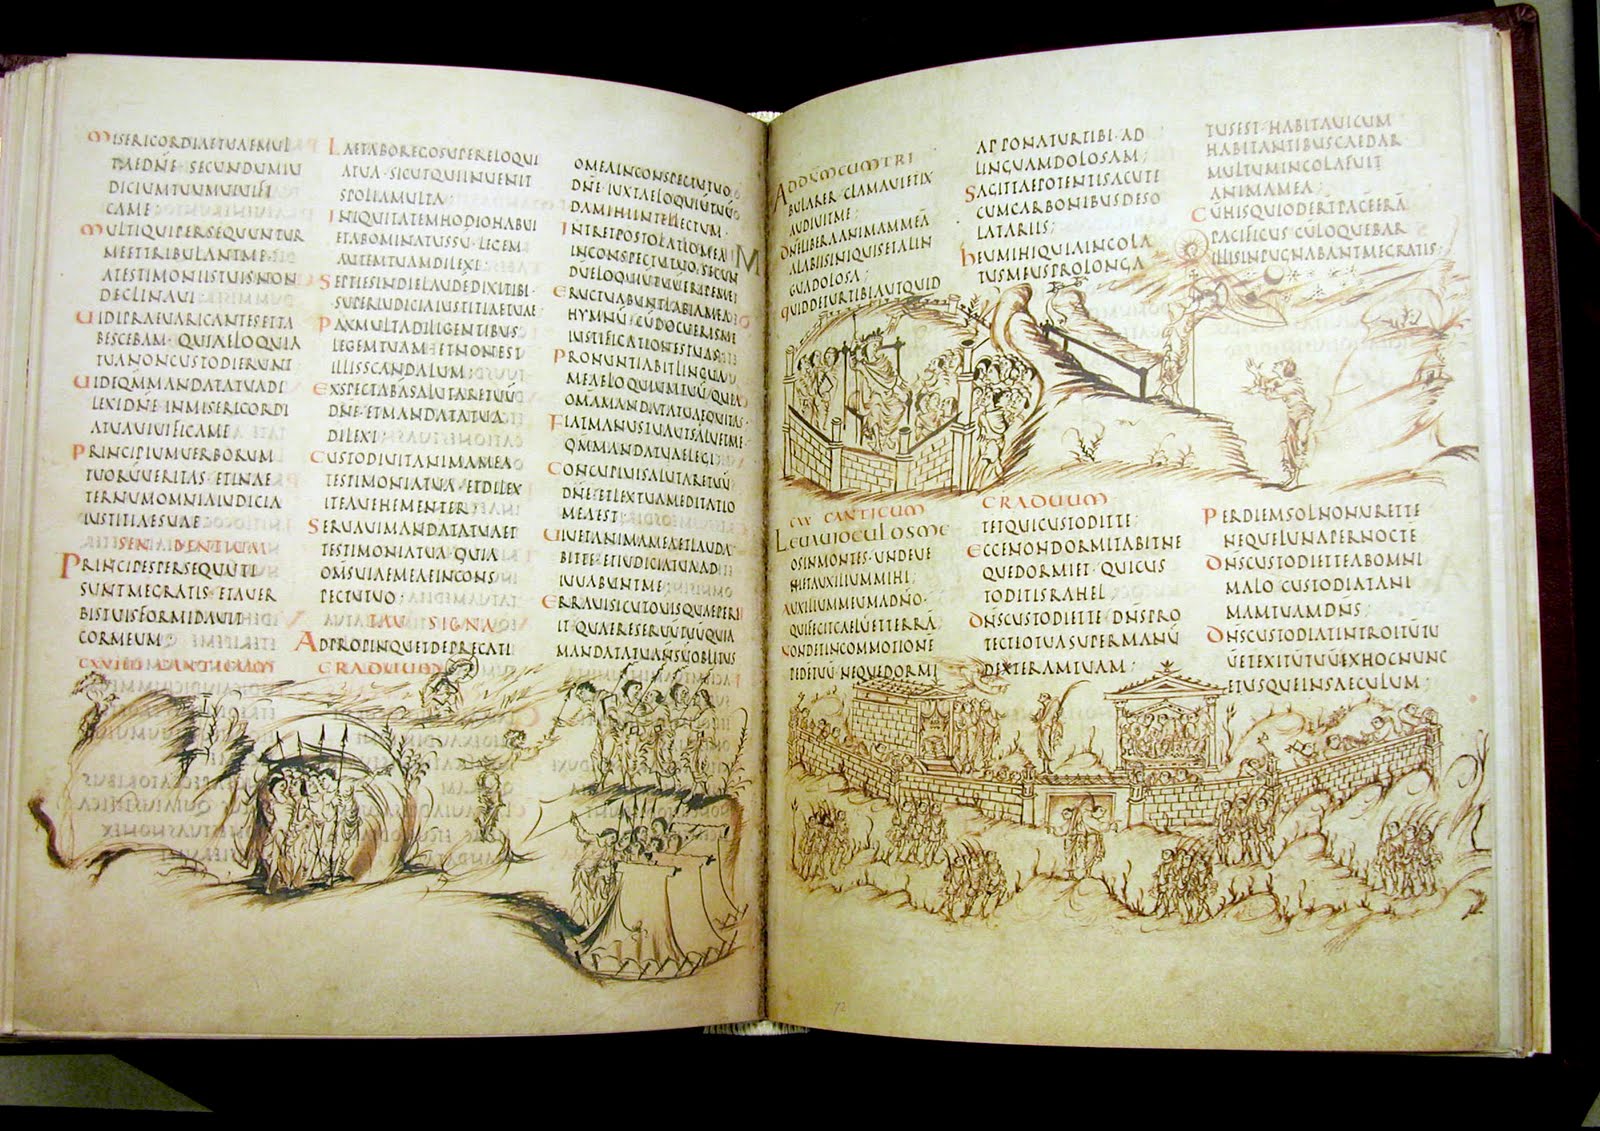 MISERICORDIAETUAEMUL
TAEDNE SECUNDUMIU
DICIUMTUUMUIUIFI
CAME
MULTIQUIPERSEQUUNTUR
MEETTRIBULANTME
ATESTIMONIISTUISNON
DECLINAUI
UIDIPRAEUARICANTESETTA
BESCEBAM QUIAELOQUIA
TUANONCUSTODIERUNT
UIDEQMMANDATATUADI
LEXIDNE INMISERICORDI
ATUAUIUIFICAME
PRINCIPIUMUERBORUM
TUORUUERITAS ETINAE
TERNUMOMNIAIUDICIA
IUSTITIAESUAE
SEN DENTIUM
PRINCIPESPERSEQUUTI
SUNTMEGRATIS ETAUER
BISTUISFORMIDAUIT
CORMEUM
LAETABOREGOSUPERELOQUI
ATUA SICUTQUIINUENIT
SPOLIAMULTA
INIQUITATEMHODIOHABUI
ETABOMINATUSSU LEGEM
AUTEMTUAMDILEXI
SEPTIESINDIELAUDEDIXITIBI
SUPERIUDICIAIUSTITIAETUAE
PAXMULTADILIGENTIBUS
LEGEMTUAM ETNONEST
ILLISSCANDALUM
EXSPECTABASALUTARETUU
DNE ETMANDATATUA
DILEXI
CUSTODIUITANIMAMEA
TESTIMONIATUA ETDILEX
ITEAUEHEMENTER
SERUAUIMANDATATUAET
TESTIMONIATUA QUIA
OMSUIAEMEAEINCONS
PECTUTUO
TAU SIGNA
ADPROPINQUETDEPRECATI
OMEAINCONSPECTUTUO
DNE IUXTAELOQUIUTUU
DAMIHIINTELLECTUM
INTRETPOSTOLATIOMEA
INCONSPECTUTUO SECUN
DUELOQUIUTUUERIPEMEI
ERUCTUABUNTLABIAMEA
HYMNU CUDOCUERISME
IUSTIFICATIONESTUAS
PRONUNTIABITLINGUA
MEAELOQUIUMTUU QUIA
OMAMANDATATUAEQUITAS
FIATMANUSTUAUTSALUETME
QMMANDATUAELEGI
CONCUPIUISALUTARETUU
DNE ETLEXTUAMEDITATIO
MEAEST
UIUETANIMAMEAETLAUDA
BITTE ETIUDICIATUAAD
IUUABUNTME
ERRAUISICUTOUISQUAEPERI
IT QUAERESERUUTUUQUIA
MANDATATUANSUOBLITUS
CXVIIII CANTICUM GRADUUM
ADDNMCUMTRI
BULARER CLAMAUIETEX
AUDIUITME
DNELIBERAANIMAMMEA
ALABIISINIQUISETALIN
GUADOLOSA
QUIDDETURTIBIAUTQUID
APPONATURTIBI AD
LINGUAMDOLOSAM
SAGITTAEPOTENTISACUTE
CUMCARBONIBUSDESO
LATARIIS
HEUMIHIQUIAINCOLA
TUSMEUSPROLONGA
TUSEST HABITAUICUM
HABITANTIBUSCAEDAR
MULTUMINCOLAFUIT
ANIMAMEA
CUHISQUIODERTPACEERA
PACIFICUS CULOQUEBAR
ILLISINPUGNABANTMEGRATIS
CXX CANTICUM GRADUUM
LEUAUIOCULOSME
OSINMONTES UNDEUE
NIETAUXILIUMMIHI
AUXILIUMMEUMADNO
QUIFECITCAELUETTERRA
NONDETINCOMMOTIONE
PEDETUU NEQUEDORMI
TETQUICUSTODITTE
ECCENONDORMITABITNE
QUEDORMIET QUICUS
TODITISRAHEL
DNSCUSTODITTE DNSPRO
TECTIOTUASUPERMANU
DEXTERAMTUAM
PERDIEMSOLNONURETTE
NEQUELUNAPERNOCTE
DNSCUSTODITTEABOMNI
MALO CUSTODIATANI
MAMTUAMDNS
DNSCUSTODIATINTROITUTU
UETEXITUTUUEXHOCNUNC
ETUSQUEINSAECULUM
72